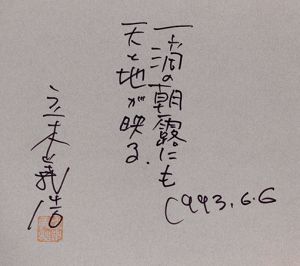 一滴の朝露にも
天と地が映る.
1993.6.6
立木義浩